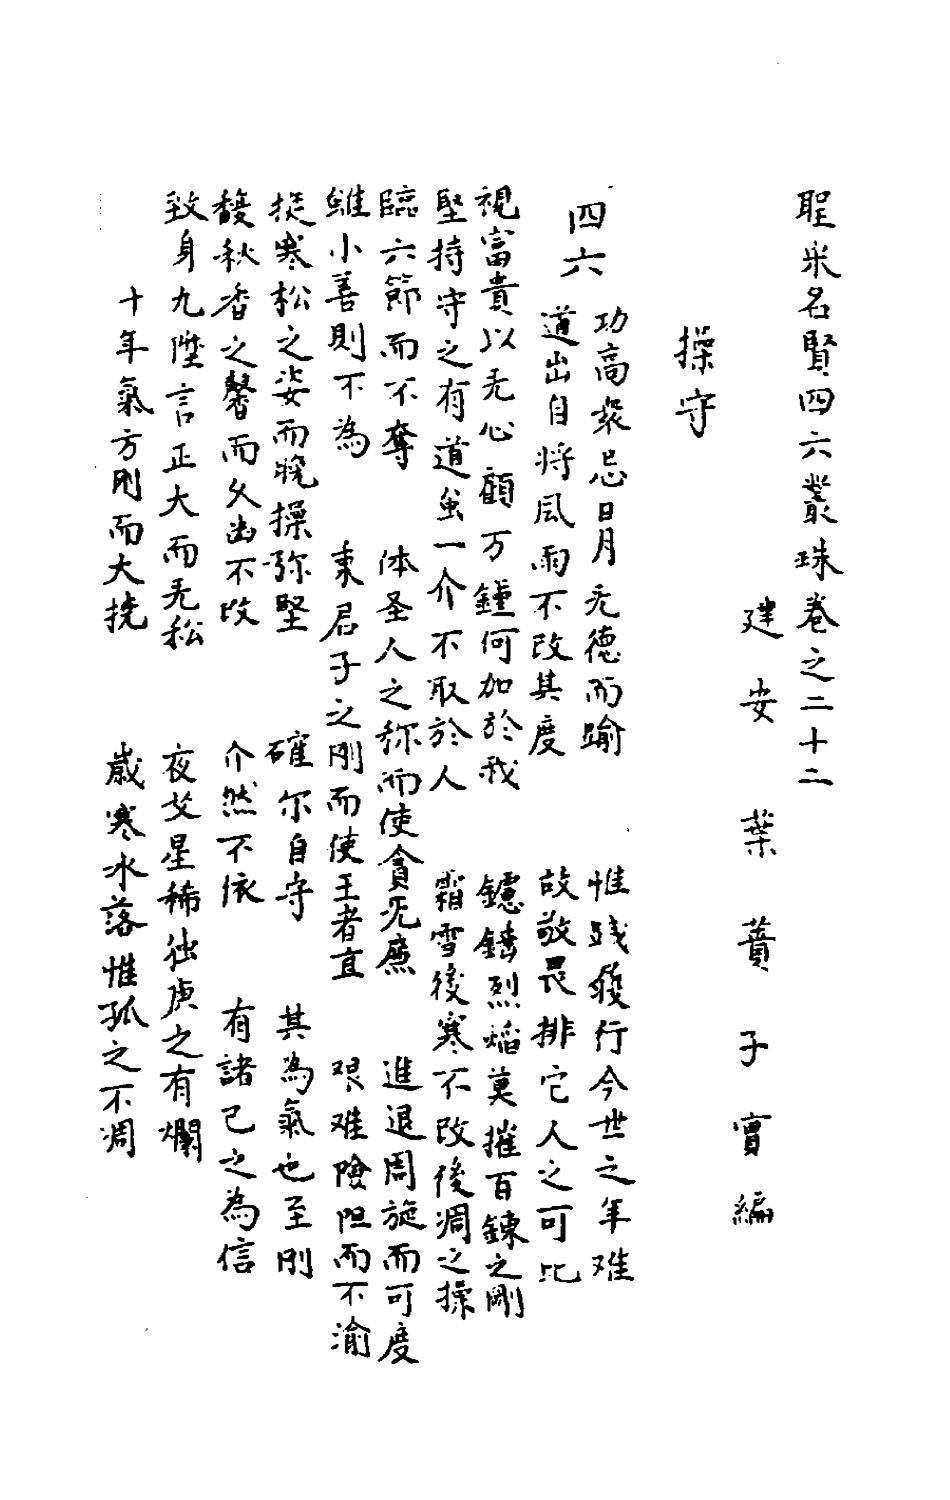 聖宋名賢四六叢珠卷之二十二
建安葉蕡子實編
操守
四六
功高衆忌日月无德而踰 惟踐發行今世之年难
道出自将风雨不改其度 故敬畏排它人之可比
視富貴以无心顧万鍾何加於我 鑪錘烈焰莫摧百鍊之剛
堅持守之有道虽一介不取於人 霜雪後寒不改後凋之操
臨六節而不奪 体圣人之称而使貪夫廉 進退周旋而可度
雖小善則不為 秉君子之刚而使王者直 艰难險阻而不渝
挺寒松之姿而晚操弥堅 確尔自守 其為氣也至刚
馥秋香之馨而久幽不改 介然不依 有諸己之為信
致身九陛言正大而无私 夜艾星稀独庚之有爛
十年氣方刚而大挠 歲寒水落惟孤之不凋